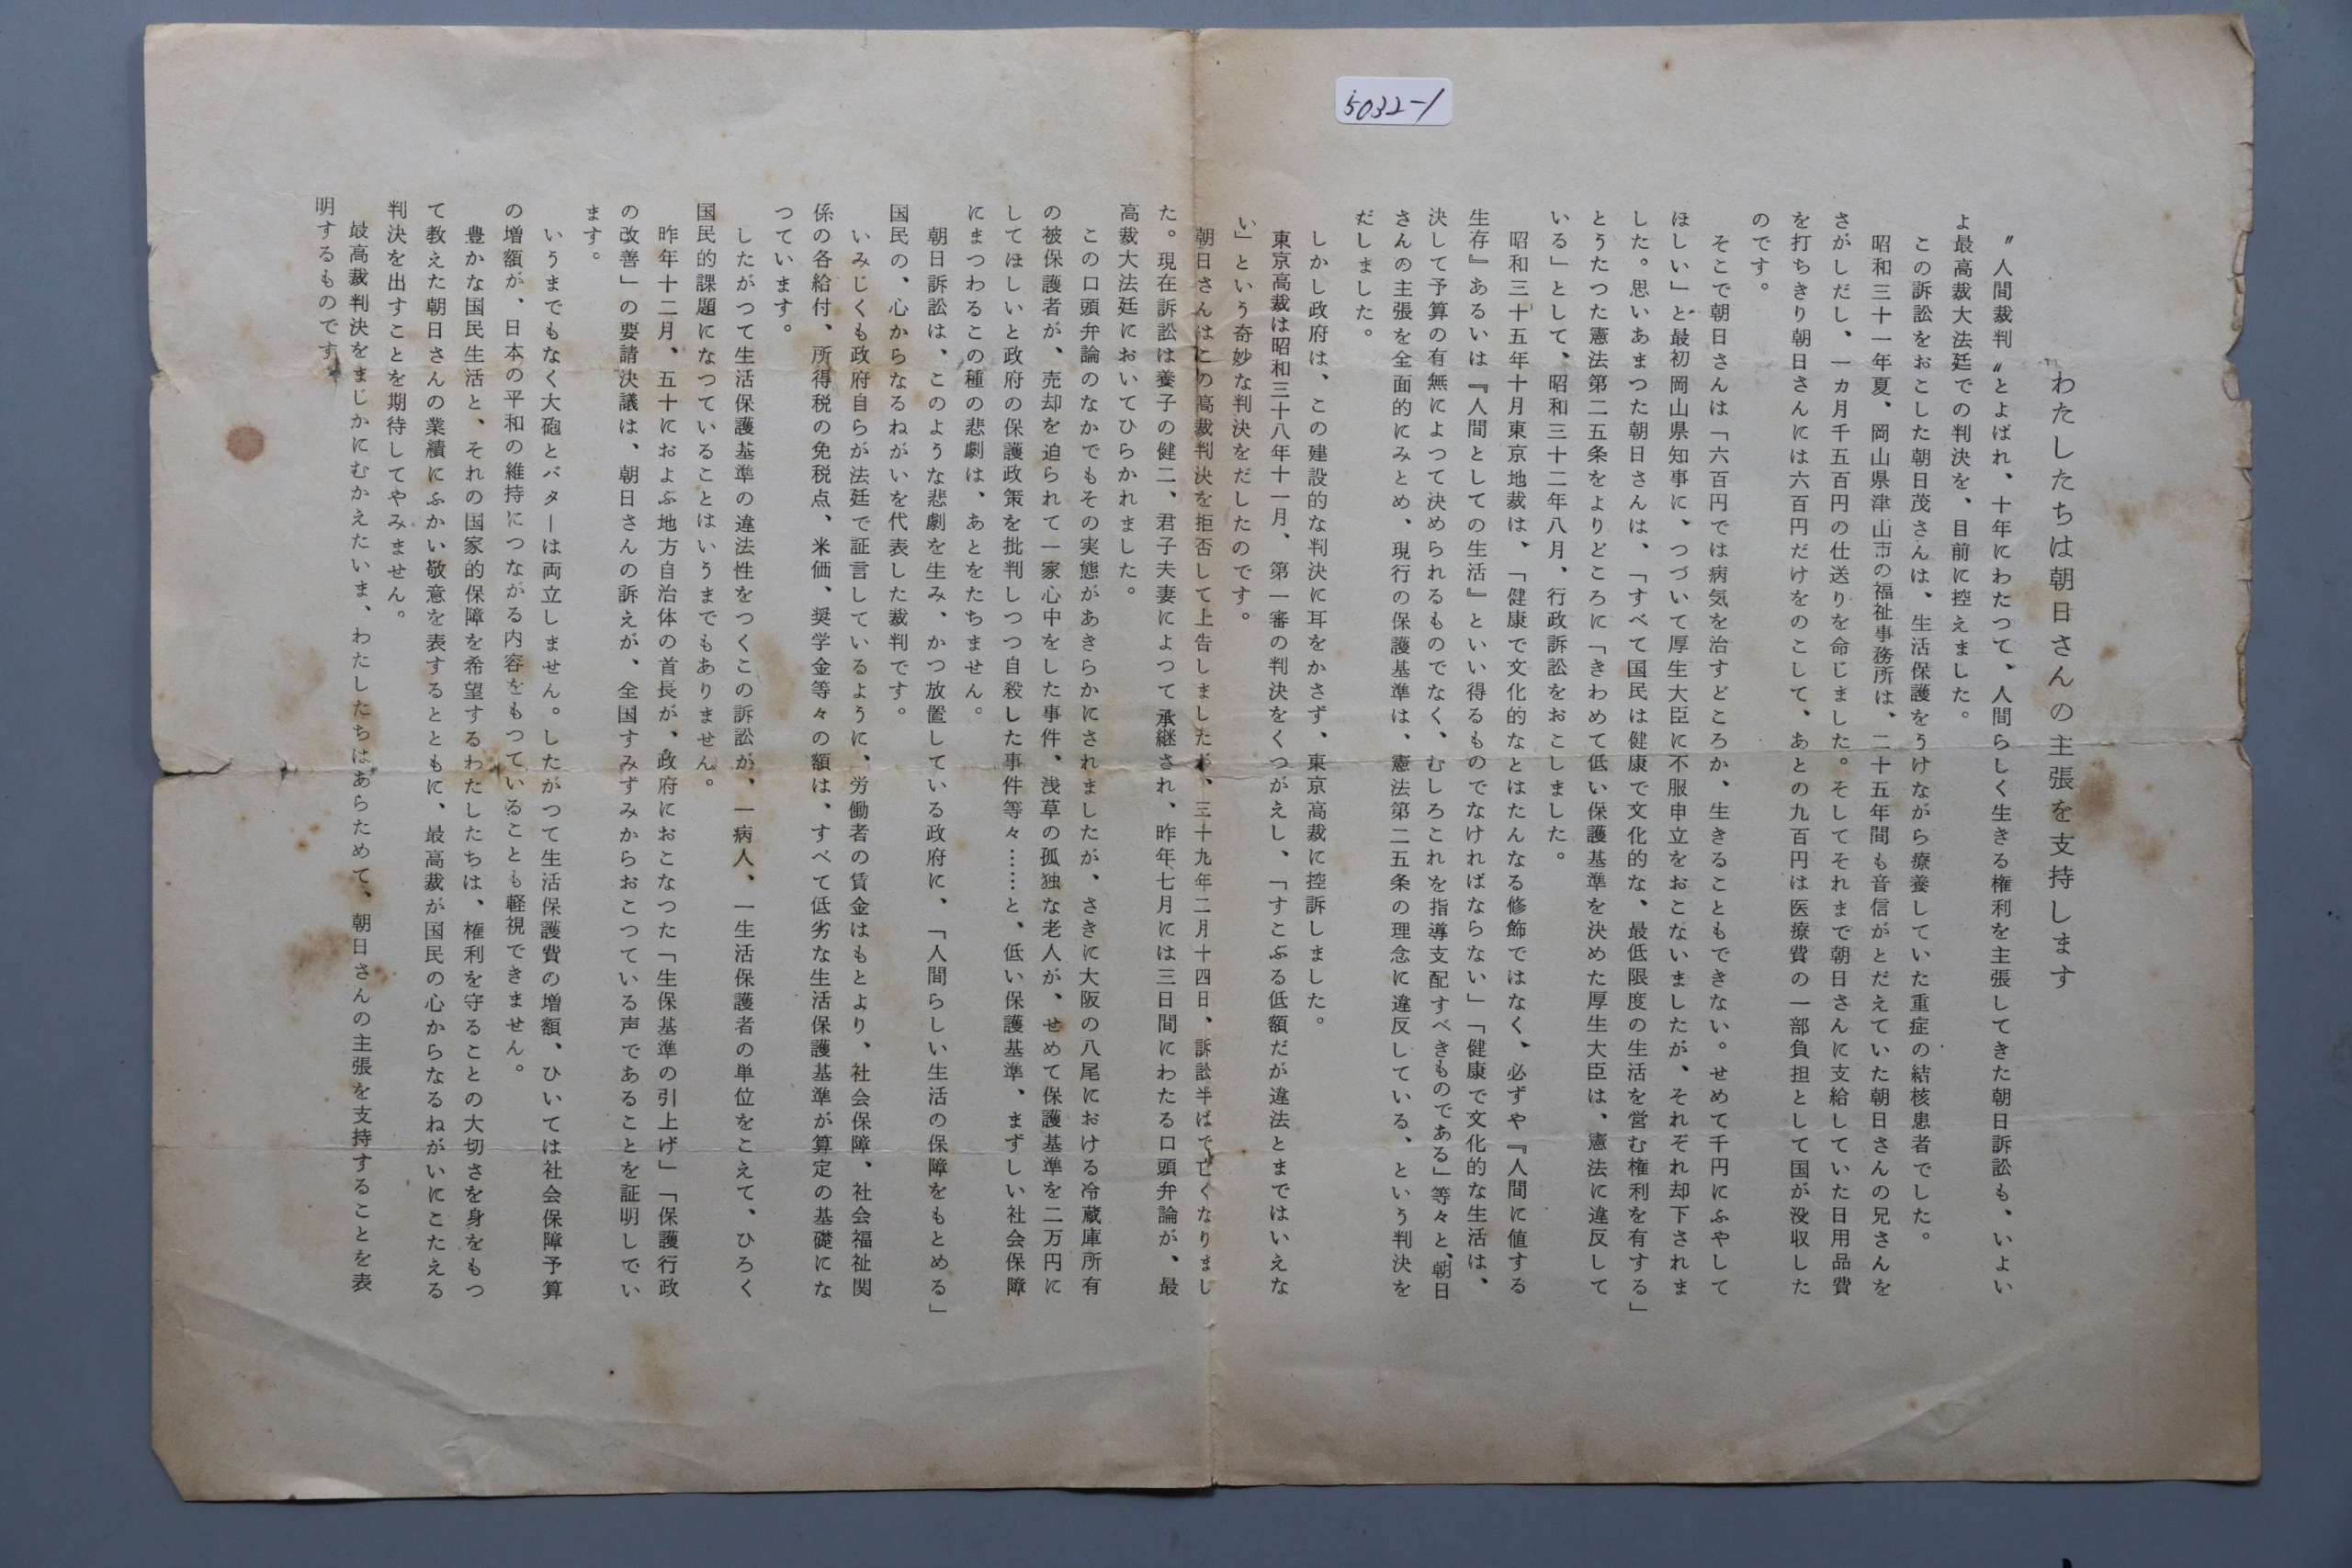 5032-1
わたしたちは朝日さんの主張を支持します
〝人間裁判〟とよばれ、十年にわたつて、人間らしく生きる権利を主張してきた朝日訴訟も、いよい
よ最高裁大法廷での判決を、目前に控えました。
この訴訟をおこした朝日茂さんは、生活保護をうけながら療養していた重症の結核患者でした。
昭和三十一年夏、岡山県津山市の福祉事務所は、二十五年間も音信がとだえていた朝日さんの兄さんを
さがしだし、一カ月千五百円の仕送りを命じました。そしてそれまで朝日さんに支給していた日用品費
を打ちきり朝日さんには六百円だけをのこして、あとの九百円は医療費の一部負担として国が没収した
のです。
そこで朝日さんは「六百円では病気を治すどころか、生きることもできない。せめて千円にふやして
ほしい」と最初岡山県知事に、つづいて厚生大臣に不服申立をおこないましたが、それぞれ却下されま
した。思いあまつた朝日さんは、「すべて国民は健康で文化的な、最低限度の生活を営む権利を有する」
とうたつた憲法第二五条をよりどころに「きわめて低い保護基準を決めた厚生大臣は、憲法に違反して
いる」として、昭和三十二年八月、行政訴訟をおこしました。
昭和三十五年十月東京地裁は、「健康で文化的なとはたんなる修飾ではなく、必ずや『人間に値する
生存』あるいは『人間としての生活』といい得るものでなければならない」「健康で文化的な生活は、
決して予算の有無によつて決められるものでなく、むしろこれを指導支配すべきものである」等々と、朝日
さんの主張を全面的にみとめ、現行の保護基準は、憲法第二五条の理念に違反している、という判決を
だしました。
しかし政府は、この建設的な判決に耳をかさず、東京高裁に控訴しました。
東京高裁は昭和三十八年十一月、第一審の判決をくつがえし、「すこぶる低額だが違法とまではいえな
い」という奇妙な判決をだしたのです。
朝日さんはこの高裁判決を拒否して上告しましたが、三十九年二月十四日、訴訟半ばで亡くなりまし
た。現在訴訟は養子の健二、君子夫妻によつて承継され、昨年七月には三日間にわたる口頭弁論が、最
高裁大法廷においてひらかれました。
この口頭弁論のなかでもその実態があきらかにされましたが、さきに大阪の八尾における冷蔵庫所有
の被保護者が、売却を迫られて一家心中をした事件、浅草の孤独な老人が、せめて保護基準を二万円に
してほしいと政府の保護政策を批判しつつ自殺した事件等々……と、低い保護基準、まずしい社会保障
にまつわるこの種の悲劇は、あとをたちません。
朝日訴訟は、このような悲劇を生み、かつ放置している政府に、「人間らしい生活の保障をもとめる」
国民の、心からなるねがいを代表した裁判です。
いみじくも政府自らが法廷で証言しているように、労働者の賃金はもとより、社会保障、社会福祉関
係の各給付、所得税の免税点、米価、奨学金等々の額は、すべて低劣な生活保護基準が算定の基礎にな
つています。
したがつて生活保護基準の違法性をつくこの訴訟が、一病人、一生活保護者の単位をこえて、ひろく
国民的課題になつていることはいうまでもありません。
昨年十二月、五十におよぶ地方自治体の首長が、政府におこなつた「生保基準の引上げ」「保護行政
の改善」の要請決議は、朝日さんの訴えが、全国すみずみからおこつている声であることを証明してい
ます。
いうまでもなく大砲とバターは両立しません。したがつて生活保護費の増額、ひいては社会保障予算
の増額が、日本の平和の維持につながる内容をもつていることも軽視できません。
豊かな国民生活と、それの国家的保障を希望するわたしたちは、権利を守ることの大切さを身をもつ
て教えた朝日さんの業績にふかい敬意を表するとともに、最高裁が国民の心からなるねがいにこたえる
判決を出すことを期待してやみません。
最高裁判決をまじかにむかえたいま、わたしたちはあらためて、朝日さんの主張を支持することを表
明するものです。